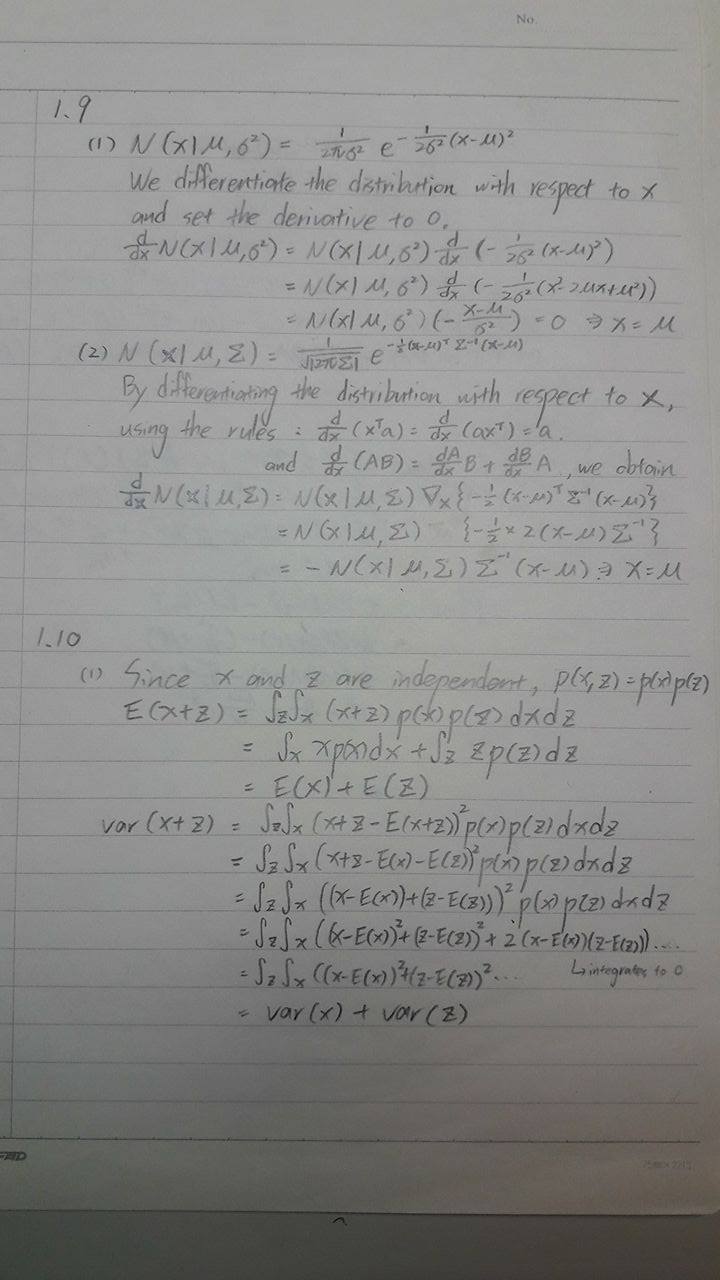 No.
1.9
(1) N(x|μ,σ²) = 1/2πσ² e^{-1/2σ² (x-μ)²}
We differentiate the distribution with respect to x
and set the derivative to 0.
d/dx N(x|μ,σ²) = N(x|μ,σ²) d/dx (-1/2σ² (x-μ)²)
= N(x|μ,σ²) d/dx (-1/2σ² (x²-2μx+μ²))
= N(x|μ,σ²)(-x-μ/σ²) = 0 ⇒ x = μ
(2) N(x|μ,Σ) = 1/√|2πΣ| e^{-½(x-μ)ᵀ Σ⁻¹(x-μ)}
By differentiating the distribution with respect to x,
using the rules : d/dx (xᵀa) = d/dx (axᵀ) = a.
and d/dx (AB) = dA/dx B + dB/dx A, we obtain
d/dx N(x|μ,Σ) = N(x|μ,Σ) ∇ₓ{-½ (x-μ)ᵀ Σ⁻¹ (x-μ)}
= N(x|μ,Σ) {-½ × 2(x-μ) Σ⁻¹}
= - N(x|μ,Σ) Σ⁻¹ (x-μ) ⇒ x = μ
1.10
(1) Since x and z are independent, p(x,z) = p(x)p(z)
E(x+z) = ∫z∫x (x+z) p(x)p(z) dxdz
= ∫x xp(x)dx + ∫z zp(z)dz
= E(x) + E(z)
var(x+z) = ∫z∫x (x+z-E(x+z))² p(x)p(z) dxdz
= ∫z∫x (x+z-E(x)-E(z))² p(x)p(z) dxdz
= ∫z∫x ((x-E(x))+(z-E(z)))² p(x)p(z) dxdz
= ∫z∫x ((x-E(x))²+(z-E(z))²+2(x-E(x))(z-E(z)))....
= ∫z∫x ((x-E(x))²+(z-E(z))²... ↳integrates to 0
= var(x) + var(z)